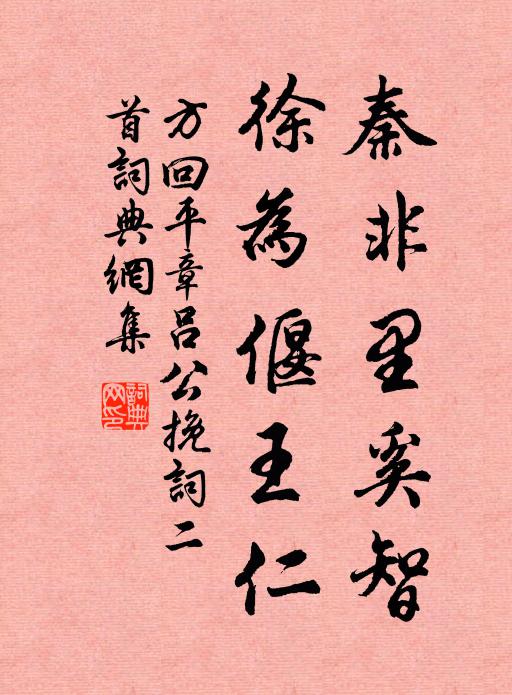 秦非里奚智
徐為偃王仁
方回平章呂公挽詞二
首詞典網集
詞典网印